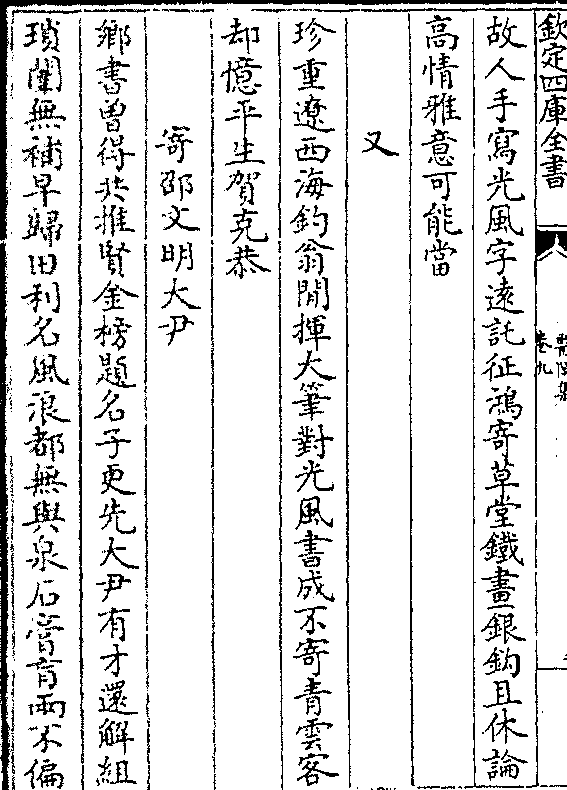 欽定四庫全書
卷九
故人手寫光風字遠託征鴻寄草堂鐵畫銀鈎且休論
高情雅意可能當
又
珍重遼西海釣翁閒揮大筆對光風書成不寄青雲客
却憶平生賀克恭
寄邵文明大尹
鄉書曽得共推賢金榜題名子更先大尹有才還解組
瑣闈無補早歸田利名風浪都無與泉石膏肓兩不偏